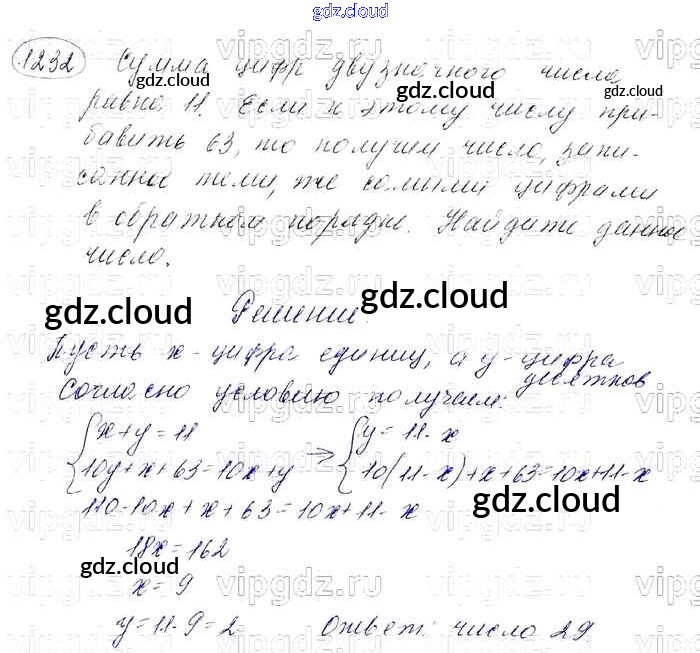 gdz.cloud
1232 Сумма цифр двузначного числа
равна 11. Если к этому числу при-
бавить 63, то получим число, запи-
санное теми, же самыми цифрами
в обратном порядке. Найдите данное
число.
Решение.
Пусть x - цифра единиц, а y - цифра
десятков
Согласно условию получаем:
{x+y=11 → {y=11-x
{10y+x+63=10x+y {10(11-x)+x+63=10x+11-x
110-10x+x+63=10x+11-x
18x=162
x=9
y=11-9=2 Ответ: число 29
gdz.cloud
gdz.cloud
gdz.cloud
gdz.cloud
gdz.cloud
gdz.cloud
gdz.cloud
gdz.cloud
gdz.cloud
gdz.cloud
vipgdz.ru